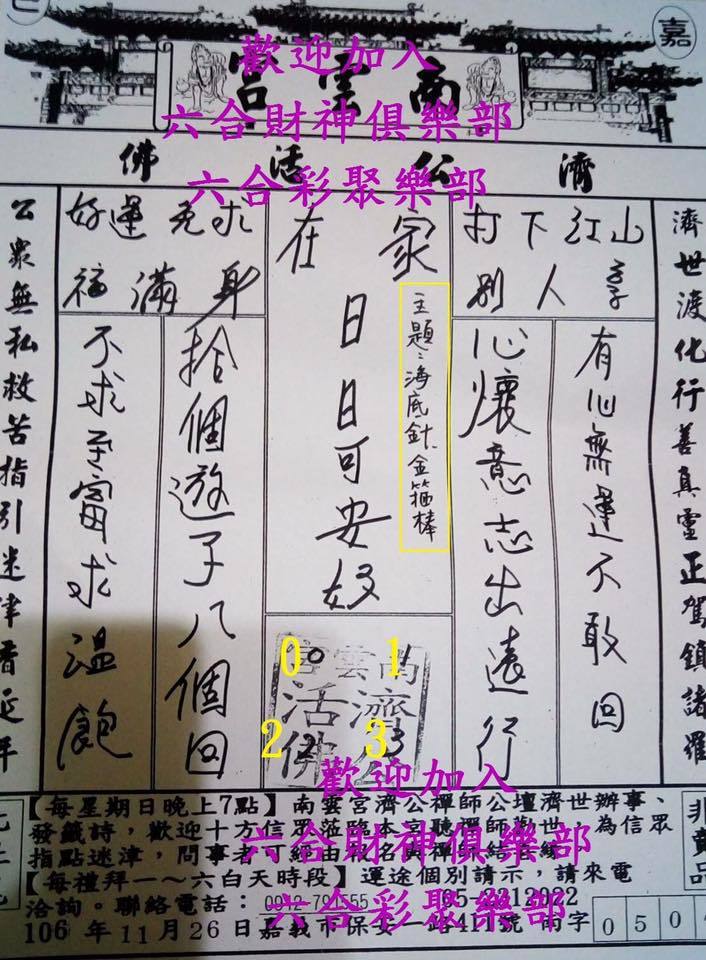 嘉
南雲宮
歡迎加入
六合財神俱樂部
六合彩聚樂部
濟公活佛
濟世渡化行善真靈正駕鎮諸羅
打下江山
別人享
有心無運不敢回
心懷意志出遠行
在家
日日可安好
主題:海底針、金箍棒
好運免求
福滿身
拾個遊子八個回
不求至富求溫飽
公眾無私救苦指引迷津壽延年
南雲宮
濟公
活佛
0 1
2 3
歡迎加入
六合財神俱樂部
六合彩聚樂部
【每星期日晚上7點】南雲宮濟公禪師公壇濟世辦事、
發籤詩,歡迎十方信眾蒞臨本宮聽禪師勸世、為信眾
指點迷津,問事者可經由報名與禪師結善緣
【每禮拜一~六白天時段】運途個別請示,請來電
洽詢。聯絡電話:
106年11月26日嘉義市保安一路411號 南字
050
非賣品